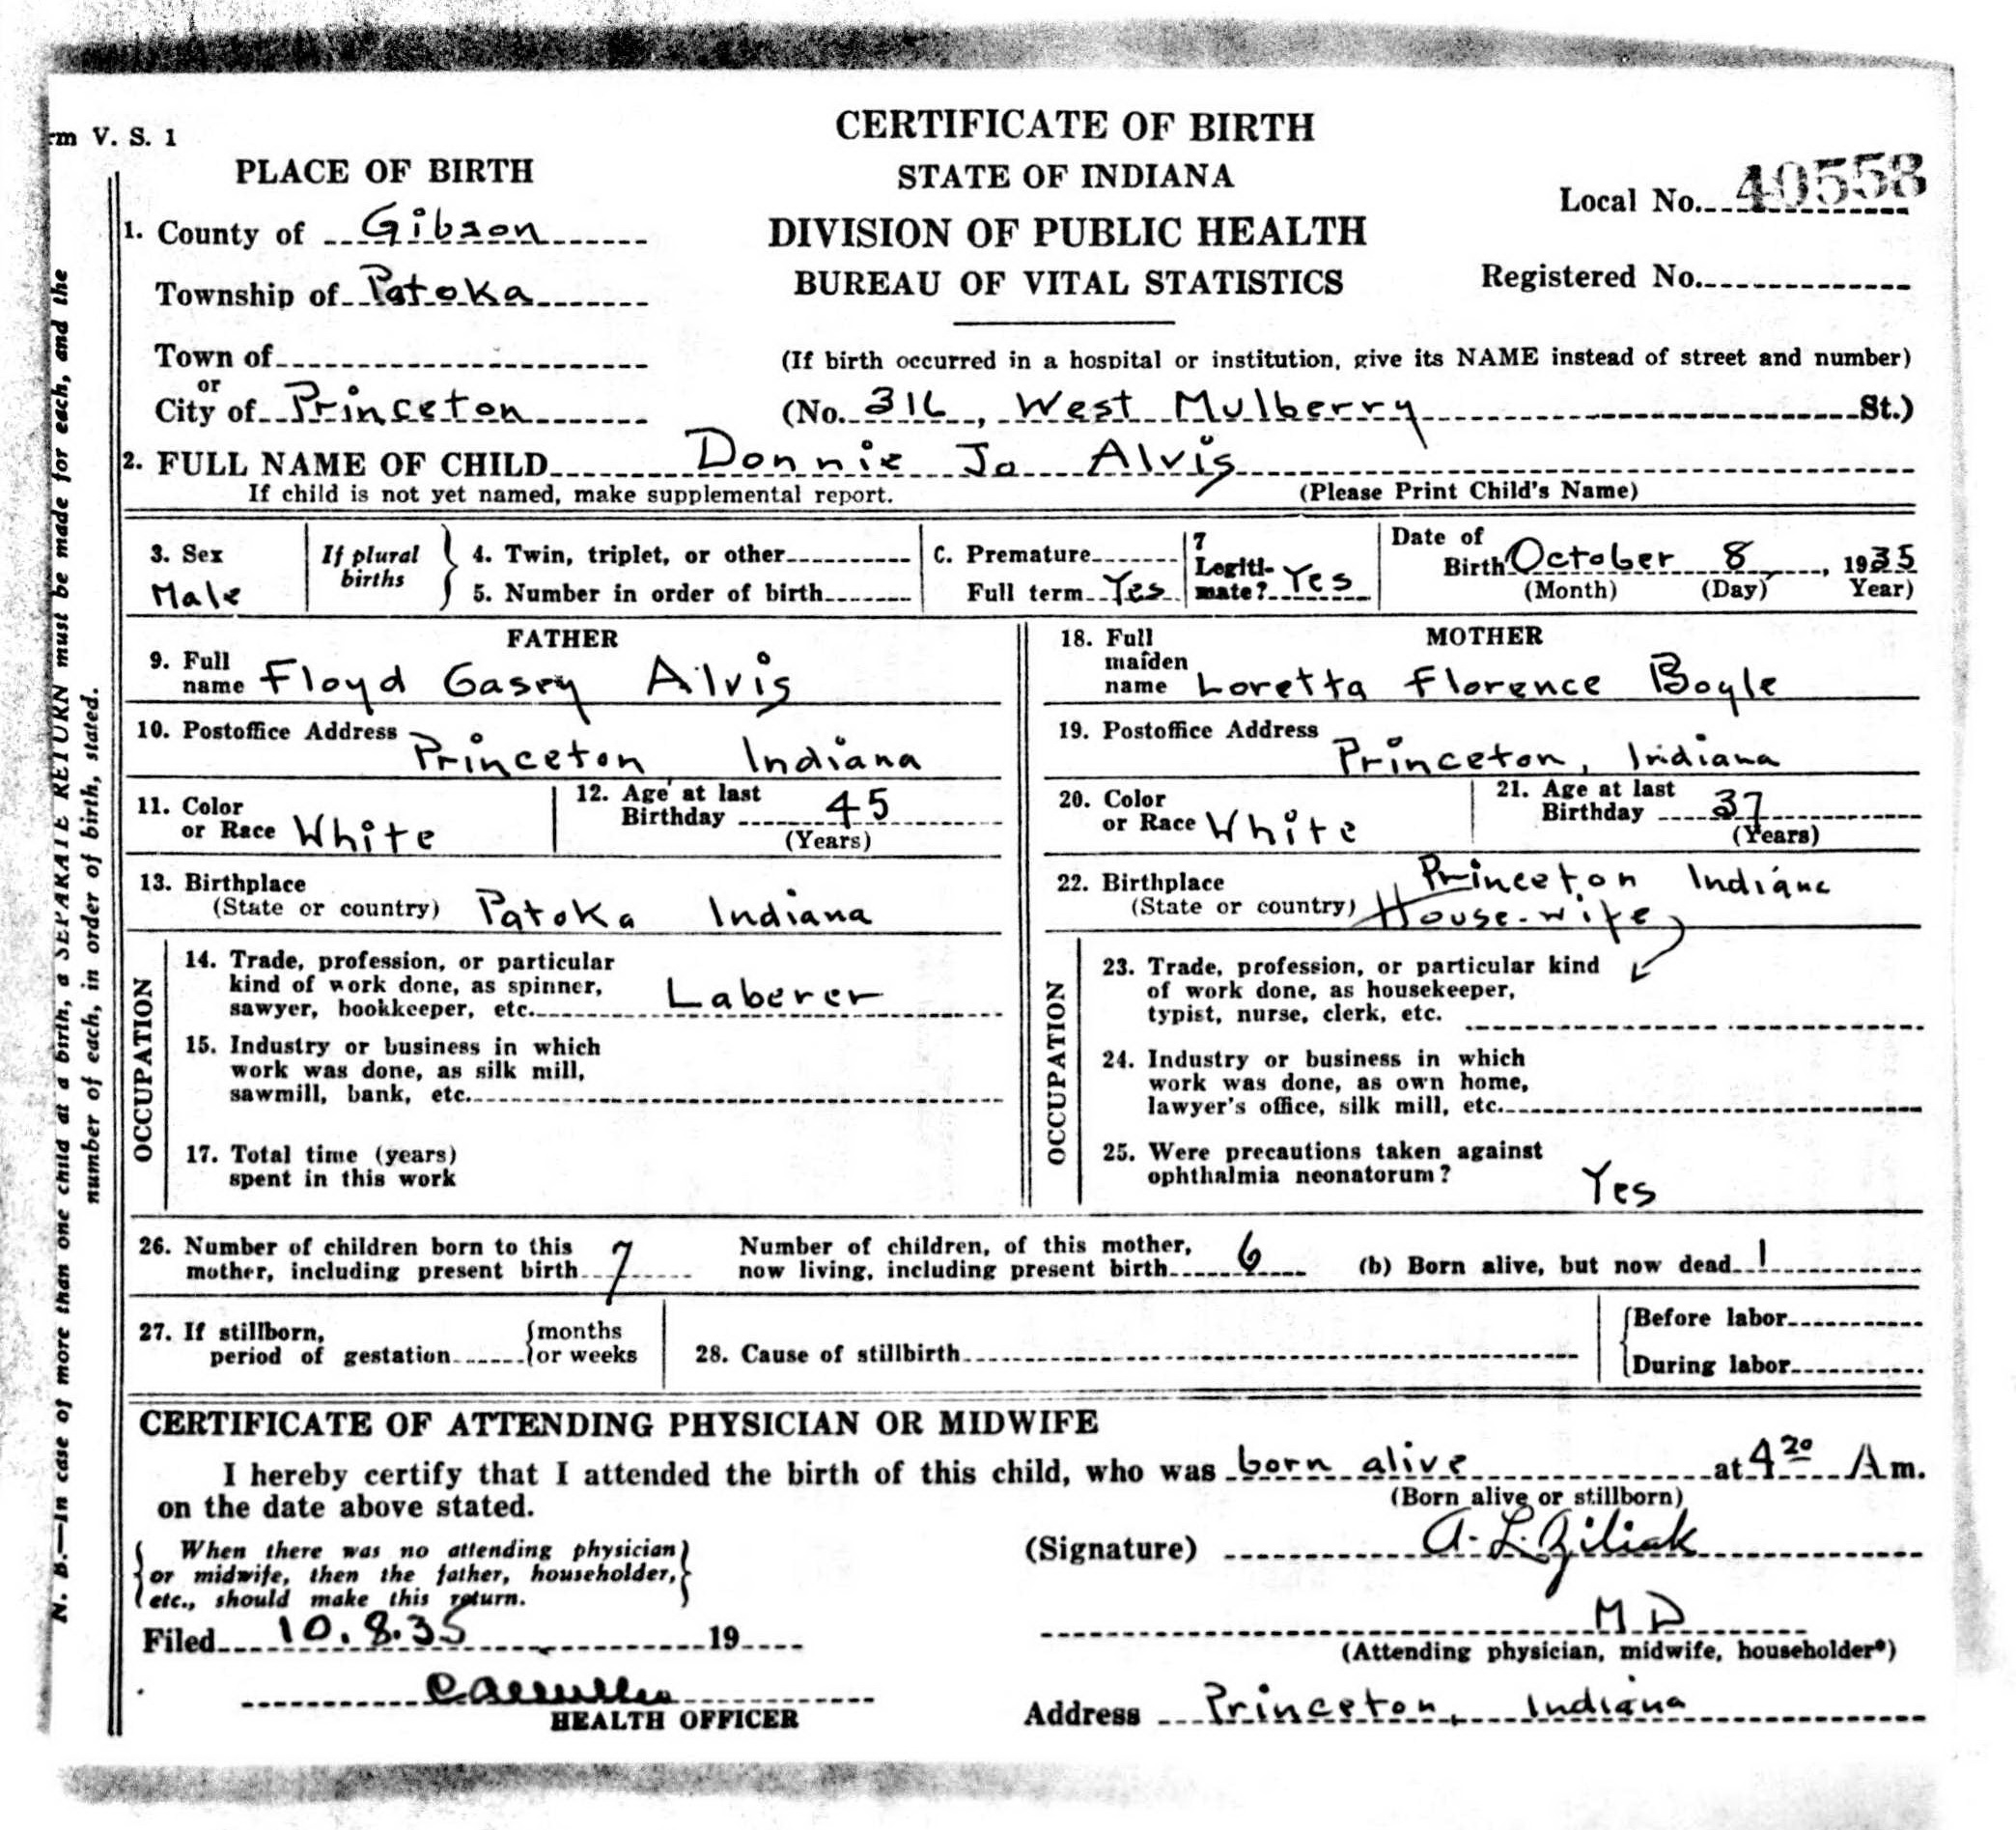 rm V. S. 1
CERTIFICATE OF BIRTH
PLACE OF BIRTH
STATE OF INDIANA
Local No. 40558
1. County of Gibson
DIVISION OF PUBLIC HEALTH
Township of Patoka
BUREAU OF VITAL STATISTICS
Registered No.
Town of
(If birth occurred in a hospital or institution, give its NAME instead of street and number)
or
City of Princeton
(No. 316, West Mulberry St.)
2. FULL NAME OF CHILD Donnie Jo Alvis
If child is not yet named, make supplemental report.
(Please Print Child's Name)
3. Sex
Male
If plural
births
4. Twin, triplet, or other
5. Number in order of birth
C. Premature
Full term Yes
7
Legiti-
mate? Yes
Date of
Birth October 8, 1935
(Month) (Day) Year)
FATHER
9. Full
name Floyd Gasey Alvis
10. Postoffice Address Princeton Indiana
11. Color
or Race White
12. Age at last
Birthday 45
(Years)
13. Birthplace
(State or country) Patoka Indiana
OCCUPATION
14. Trade, profession, or particular
kind of work done, as spinner,
sawyer, bookkeeper, etc. Laberer
15. Industry or business in which
work was done, as silk mill,
sawmill, bank, etc.
17. Total time (years)
spent in this work
MOTHER
18. Full
maiden
name Loretta Florence Boyle
19. Postoffice Address Princeton, Indiana
20. Color
or Race White
21. Age at last
Birthday 37
(Years)
22. Birthplace Princeton Indiana
(State or country) House-wife
OCCUPATION
23. Trade, profession, or particular kind
of work done, as housekeeper,
typist, nurse, clerk, etc.
24. Industry or business in which
work was done, as own home,
lawyer's office, silk mill, etc.
25. Were precautions taken against
ophthalmia neonatorum? Yes
26. Number of children born to this
mother, including present birth 7
Number of children, of this mother,
now living, including present birth 6
(b) Born alive, but now dead 1
27. If stillborn,
period of gestation
months
or weeks
28. Cause of stillbirth
Before labor
During labor
CERTIFICATE OF ATTENDING PHYSICIAN OR MIDWIFE
I hereby certify that I attended the birth of this child, who was born alive at 4 20 A m.
(Born alive or stillborn)
on the date above stated.
When there was no attending physician
or midwife, then the father, householder,
etc., should make this return.
(Signature) A. L. Ziliak
M D
(Attending physician, midwife, householder*)
Filed 10.8.35 19
HEALTH OFFICER
Address Princeton, Indiana
N. B.—In case of more than one child at a birth, a SEPARATE RETURN must be made for each, and the
number of each, in order of birth, stated.